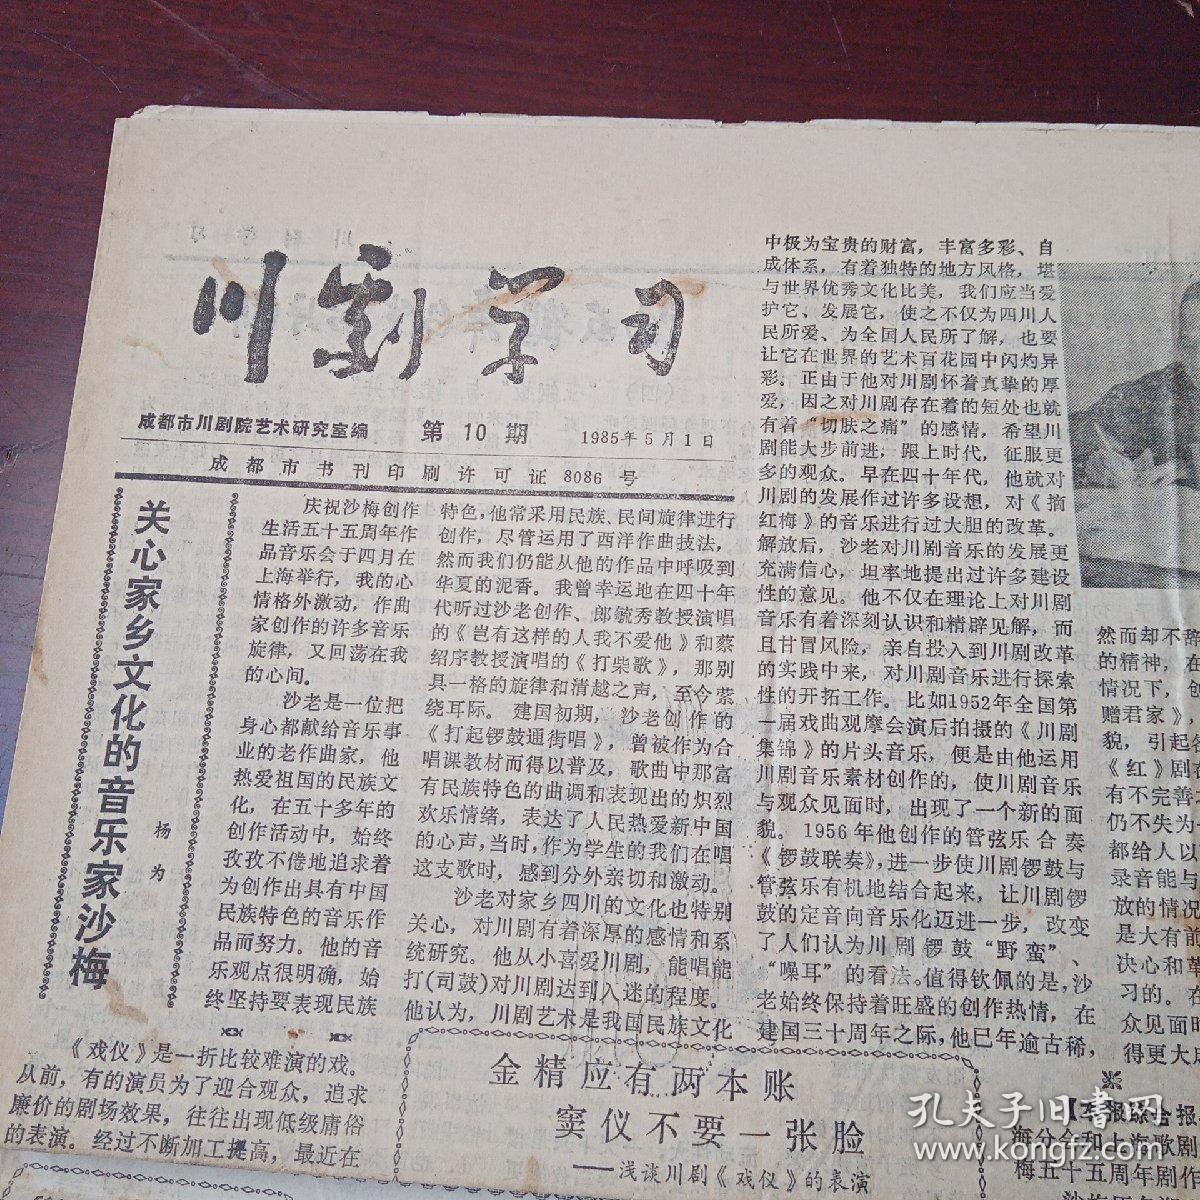 川剧学习
成都市川剧院艺术研究室编 第10期 1985年5月1日
成都市书刊印刷许可证8086号
关心家乡文化的音乐家沙梅
杨为
庆祝沙梅创作
生活五十五周年作
品音乐会于四月在
上海举行，我的心
情格外激动，作曲
家创作的许多音乐
旋律，又回荡在我
的心间。
沙老是一位把
身心都献给音乐事
业的老作曲家，他
热爱祖国的民族文
化，在五十多年的
创作活动中，始终
孜孜不倦地追求着
为创作出具有中国
民族特色的音乐作
品而努力。他的音
乐观点很明确，始
终坚持要表现民族
特色，他常采用民族、民间旋律进行
创作，尽管运用了西洋作曲技法，
然而我们仍能从他的作品中呼吸到
华夏的泥香。我曾幸运地在四十年
代听过沙老创作、郎毓秀教授演唱
的《岂有这样的人我不爱他》和蔡
绍序教授演唱的《打柴歌》，那别
具一格的旋律和清越之声，至今萦
绕耳际。建国初期，沙老创作的
《打起锣鼓通街唱》，曾被作为合
唱课教材而得以普及，歌曲中那富
有民族特色的曲调和表现出的炽烈
欢乐情绪，表达了人民热爱新中国
的心声，当时，作为学生的我们在唱
这支歌时，感到分外亲切和激动。
沙老对家乡四川的文化也特别
关心，对川剧有着深厚的感情和系
统研究。他从小喜爱川剧，能唱能
打(司鼓)对川剧达到入迷的程度。
他认为，川剧艺术是我国民族文化
中极为宝贵的财富，丰富多彩、自
成体系，有着独特的地方风格，堪
与世界优秀文化比美，我们应当爱
护它、发展它，使之不仅为四川人
民所爱、为全国人民所了解，也要
让它在世界的艺术百花园中闪灼异
彩。正由于他对川剧怀着真挚的厚
爱，因之对川剧存在着的短处也就
有着“切肤之痛”的感情，希望川
剧能大步前进，跟上时代，征服更
多的观众。早在四十年代，他就对
川剧的发展作过许多设想，对《摘
红梅》的音乐进行过大胆的改革。
解放后，沙老对川剧音乐的发展更
充满信心，坦率地提出过许多建设
性的意见。他不仅在理论上对川剧
音乐有着深刻认识和精辟见解，而
且甘冒风险，亲自投入到川剧改革
的实践中来，对川剧音乐进行探索
性的开拓工作。比如1952年全国第
一届戏曲观摩会演后拍摄的《川剧
集锦》的片头音乐，便是由他运用
川剧音乐素材创作的，使川剧音乐
与观众见面时，出现了一个新的面
貌。1956年他创作的管弦乐合奏
《锣鼓联奏》，进一步使川剧锣鼓与
管弦乐有机地结合起来，让川剧锣
鼓的定音向音乐化迈进一步，改变
了人们认为川剧锣鼓“野蛮”、
“噪耳”的看法。值得钦佩的是，沙
老始终保持着旺盛的创作热情，在
建国三十周年之际，他已年逾古稀，
然而却不辞
的精神，在
情况下，创
赠君家》，
貌，引起
《红》剧在
有不完善
仍不失为一
都给人以
录音能与
放的情况
是大有前
决心和革
习的。在
众见面时
得更大
《戏仪》是一折比较难演的戏。
从前，有的演员为了迎合观众，追求
廉价的剧场效果，往往出现低级庸俗
的表演。经过不断加工提高，最近在
金精应有两本账
窦仪不要一张脸
——浅谈川剧《戏仪》的表演
【本报综合报
海分会和上海歌剧
梅五十五周年剧作
孔夫子旧书网
www.kongfz.com